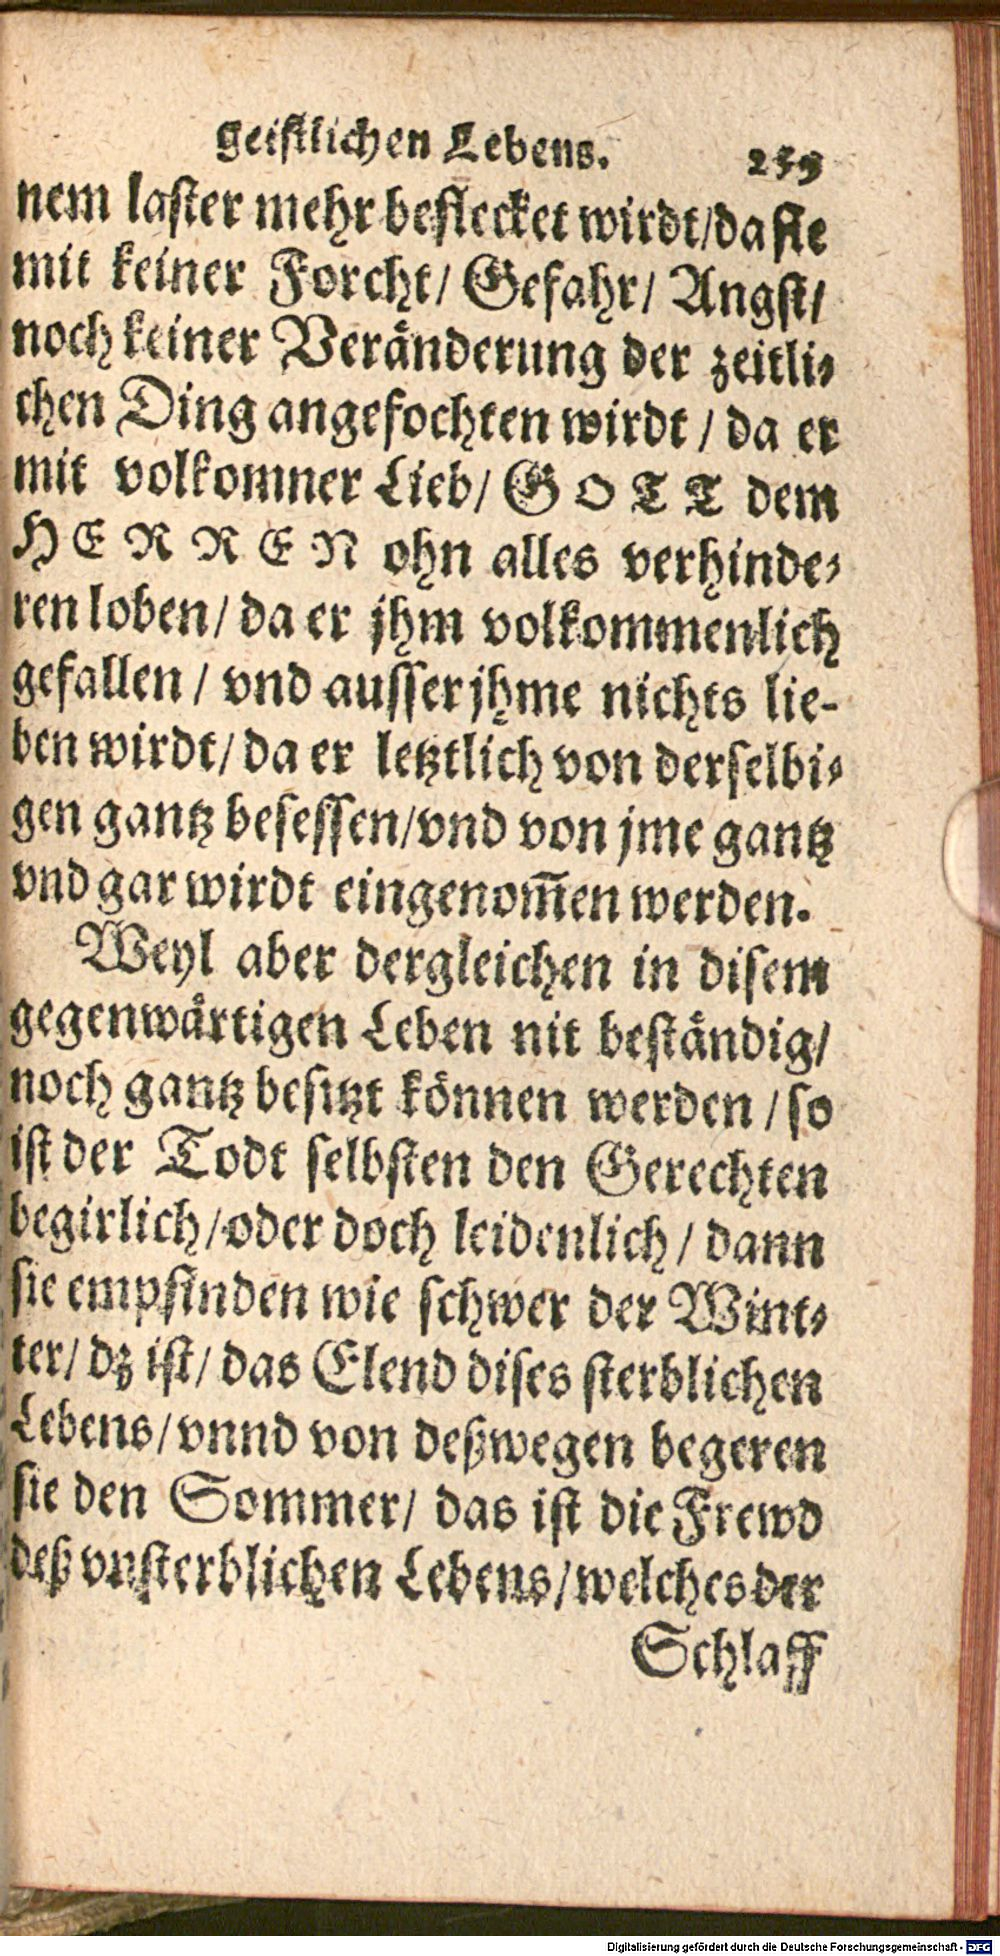 geistlichen Lebens. 259
nem laster mehr beflecket wirdt/da sie
mit keiner Forcht/ Gefahr/ Angst/
noch keiner Veränderung der zeitli-
chen Ding angefochten wirdt / da er
mit volkomner Lieb/ GOTT dem
HERREN ohn alles verhinde-
ren loben/ da er jhm volkommenlich
gefallen / vnd ausser jhme nichts lie-
ben wirdt/ da er letztlich von derselbi-
gen gantz besessen/vnd von jme gantz
vnd gar wirdt eingenom̃en werden.
Weyl aber dergleichen in disem
gegenwärtigen Leben nit beständig/
noch gantz besitzt können werden / so
ist der Todt selbsten den Gerechten
begirlich/oder doch leidenlich / dann
sie empfinden wie schwer der Wint-
ter/ dz ist/ das Elend dises sterblichen
Lebens/vnnd von deßwegen begeren
sie den Sommer/ das ist die Frewd
deß vnsterblichen Lebens/welches der
Schlaff
Digitalisierung gefördert durch die Deutsche Forschungsgemeinschaft - DFG